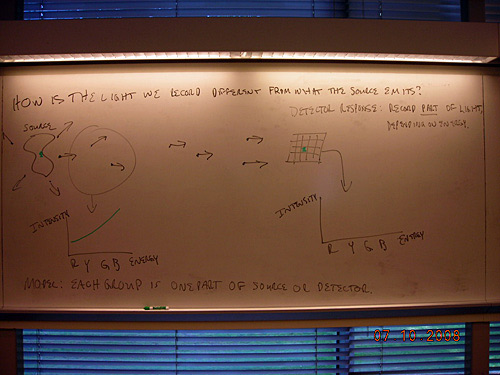 HOW IS THE LIGHT WE RECORD DIFFERENT FROM WHAT THE SOURCE EMITS?
DETECTOR RESPONSE: RECORD PART OF LIGHT,
DEPENDING ON ENERGY.
SOURCE
INTENSITY
R Y G B ENERGY
INTENSITY
R Y G B ENERGY
MODEL: EACH GROUP IS ONE PART OF SOURCE OR DETECTOR.
07 10 2008